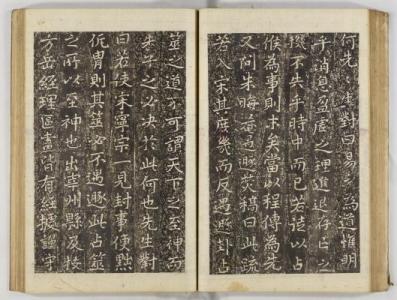 何先生對曰易之為道惟明
于消息盈虛之理進退存亡之
幾不失乎時中而已若徒以占
候為事則末矣當以程傳為先
又問朱晦菴遇遯焚稿曰此疏
若入宋其庶幾而反遇遯卦占
筮之道亦可謂天下之至神而
朱子之必決於此何也先生對
曰若使宋寧宗一見封事便黜
侂胄則其筮必不遇遯此占筮
之所以至神也出宰州縣及按
方岳經理區畫皆有經據謹守